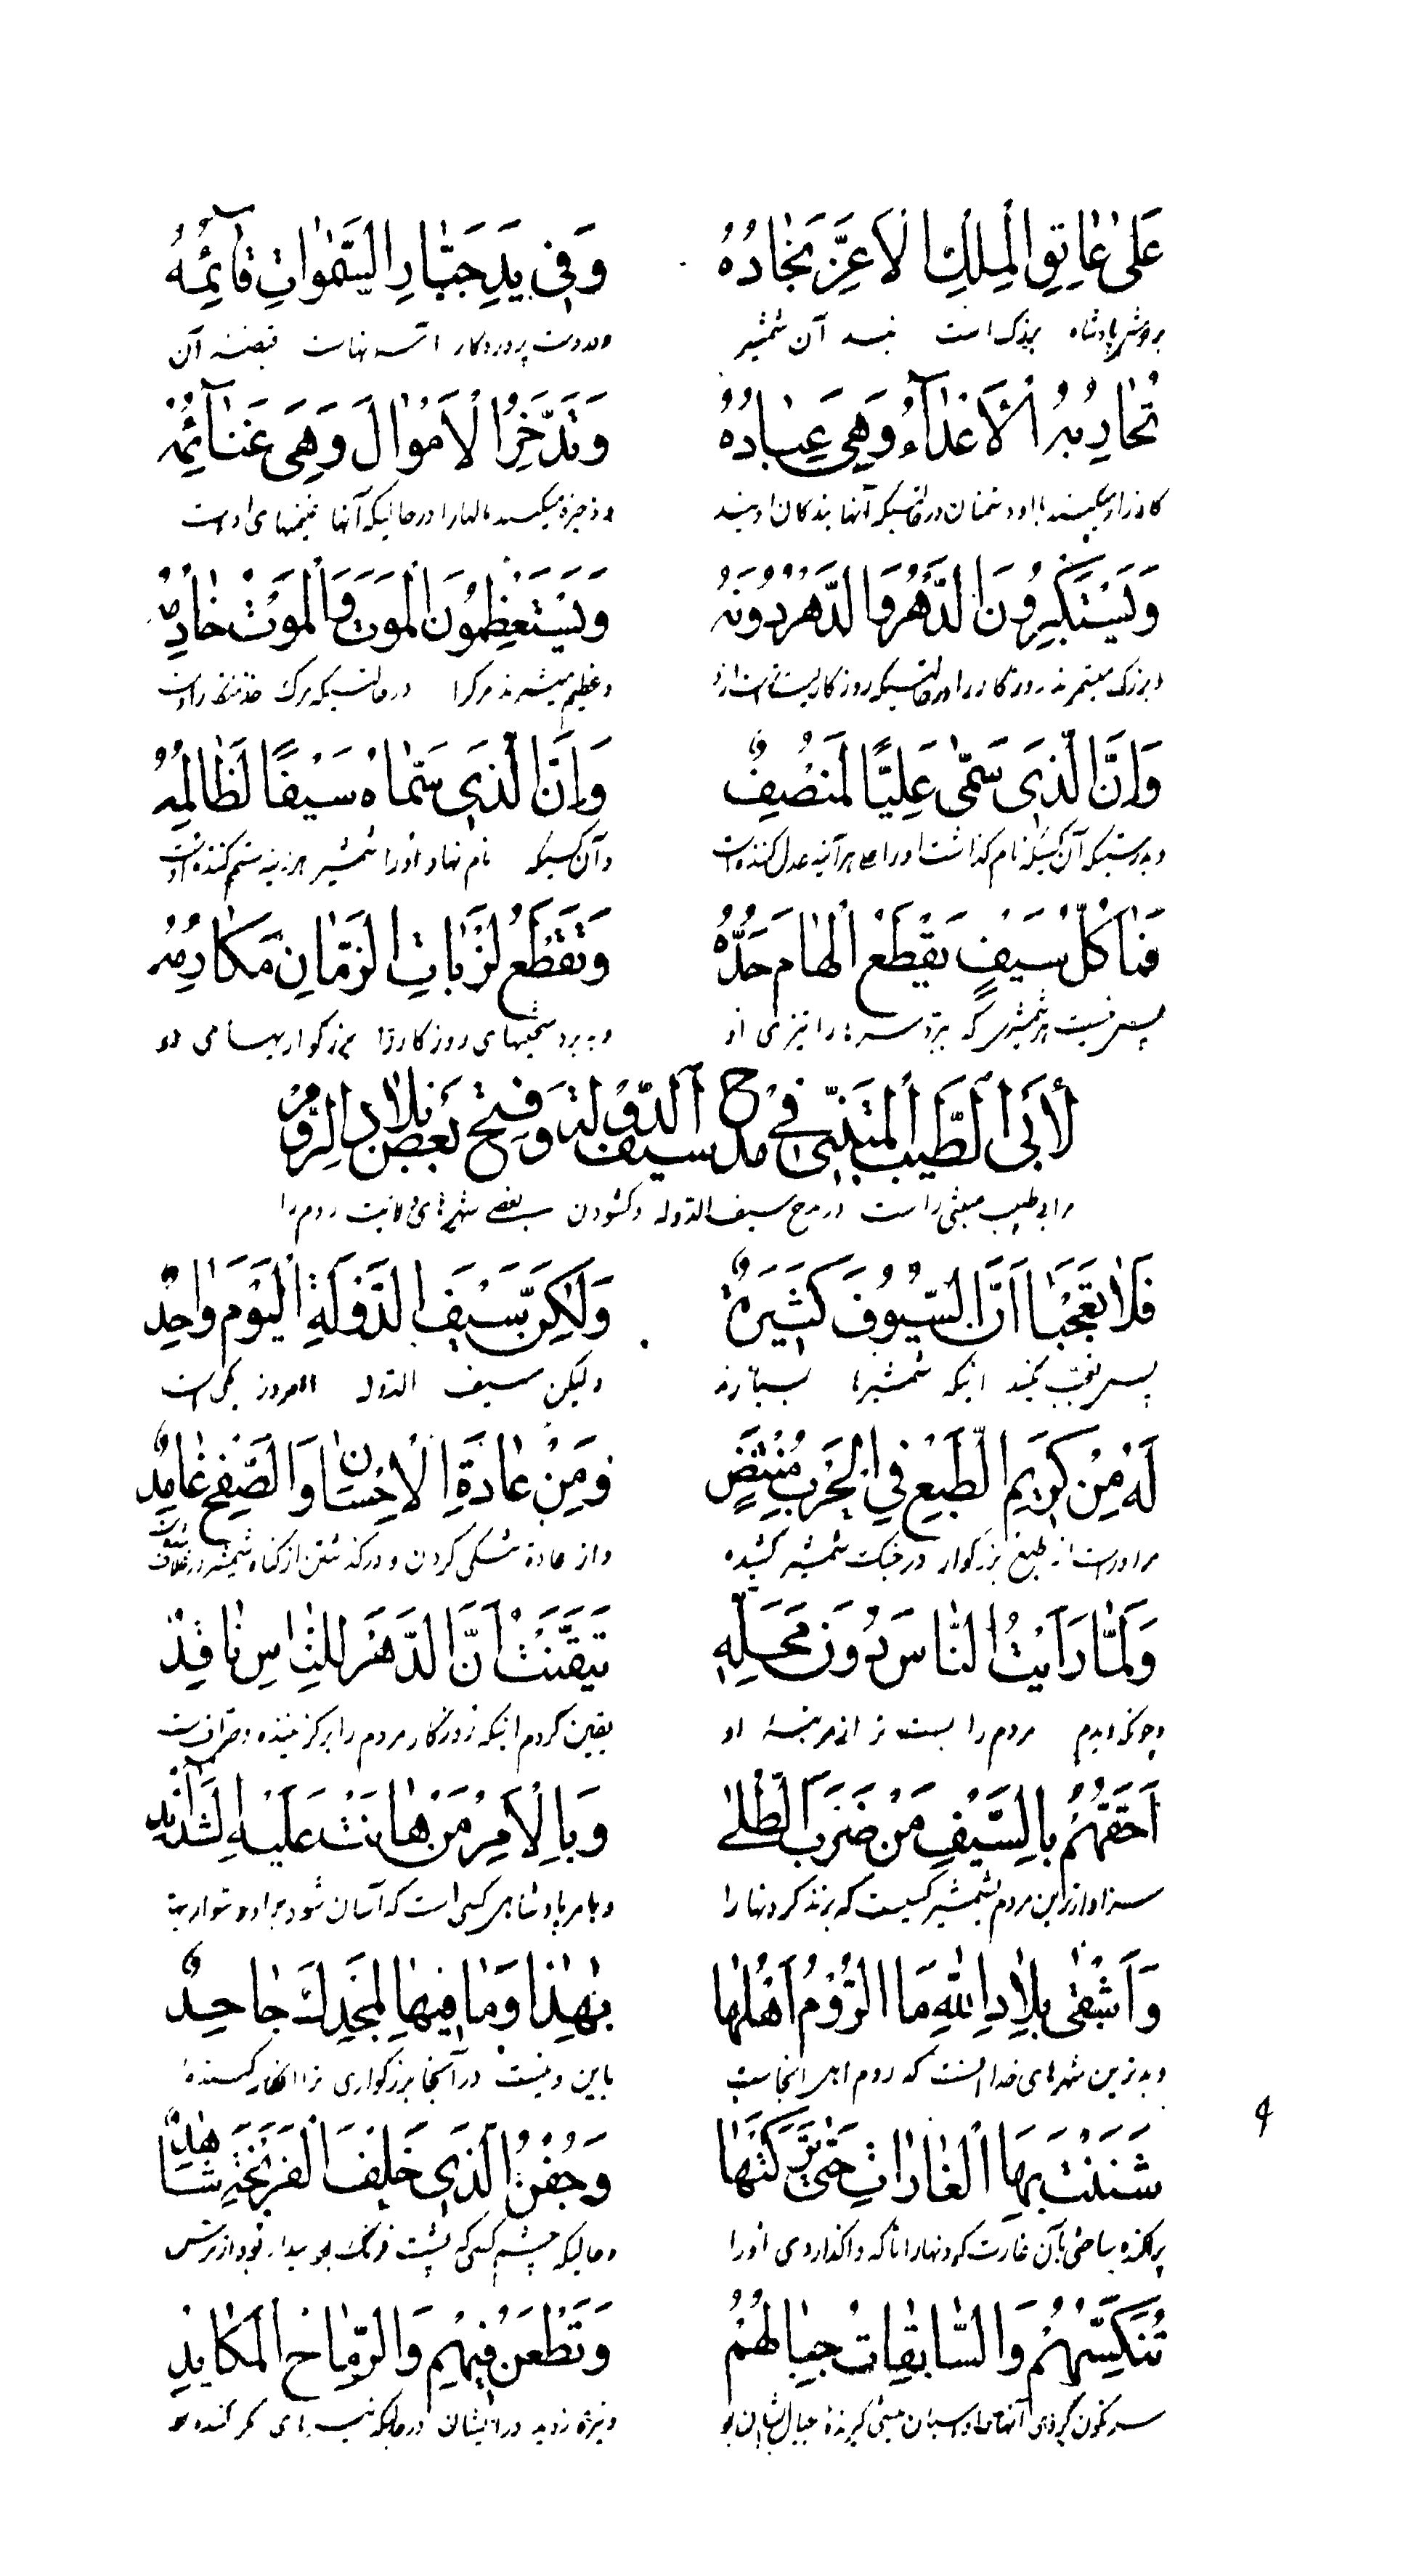 عَلىٰ عٰاتِقِ الْمَلِكِ الْاَعَزِّ نِجٰادُهُ وَفِي يَدِ جَبّٰارِ السَّمٰوٰاتِ قٰآئِمُهُ
بردوش پادشاه بزرک است بند آن شمشیر ودردست پروردکار آسمانهاست قبضه آن
تُحٰارِبُهُ الْاَعْدٰآءُ وَهِيَ عِبٰادُهُ وَتَدَّخِرُ الْاَمْوٰالَ وَهِيَ غَنٰآئِمُهُ
کارزار میکنند بااو دشمنان درحالتیکه آنها بندکان اویند وذخیره میکنند مالهارا درحالیکه آنها غنیمتهای اوست
وَيَسْتَكْبِرُونَ الدَّهْرَ وَالدَّهْرُ دُونَهُ وَيَسْتَعْظِمُونَ الْمَوْتَ وَالْمَوْتُ خٰادِمُهُ
وبزرک میشمرند روزکار را درحالتیکه روزکار پست است از او وعظیم میشمرند مرکرا درحالتیکه مرک
وَاِنَّ الَّذِي سَمّٰى عَلِيًّا لَمُنْصِفٌ وَاِنَّ الَّذِي سَمّٰاهُ سَيْفًا لَظٰالِمُهُ
وبدرستیکه آن کسیکه نام کذاشت اورا علی هرآینه عدل کننده است وآن کسیکه نام نهاد اورا شمشیر هرآینه ستم کننده اوست
فَمٰا كُلُّ سَيْفٍ يَقْطَعُ الْهٰامَ حَدُّهُ وَتَقْطَعُ لَزْبٰاتِ الزَّمٰانِ مَكٰارِمُهُ
پس نیست هرشمشیری که ببرد سرها را تیزی او وببرد سختیهای روزکار را بزرکواریهای او
لِأَبِي الطَّيِّبِ الْمُتَنَبِّي فِي مَدْحِ سَيْفِ الدَّوْلَةِ وَفَتْحِ بَعْضِ بِلٰادِ الرُّومِ
مرابی طیب متنبی راست در مدح سیف الدوله وکشودن بعضی شهرهای ولایت روم را
فَلٰا تَعْجَبٰا اَنَّ السُّيُوفَ كَثِيرَةٌ وَلٰكِنَّ سَيْفَ الدَّوْلَةِ الْيَوْمَ وٰاحِدٌ
پس تعجب مکنید اینکه شمشیرها بسیارند ولیکن سیف الدوله امروز یکی است
لَهُ مِنْ كَرِيمِ الطَّبْعِ فِي الْحَرْبِ مُنْتَضٍ وَمِنْ عٰادَةِ الْاِحْسٰانِ وَالصَّفْحِ غٰامِدٌ
مراوراست از طبع بزرکوار درجنک شمشیر کشیده واز عادة نیکی کردن ودرکذشتن ازکناه شمشیر درغلاف
وَلَمّٰا رَاَيْتُ النّٰاسَ دُونَ مَحَلِّهِ تَيَقَّنْتُ اَنَّ الدَّهْرَ لِلنّٰاسِ نٰاقِدٌ
وچونکه دیدم مردم را پست تر از مرتبهٔ او یقین کردم اینکه روزکار مردم را برکزیننده وصراف است
اَحَقُّهُمُ بِالسَّيْفِ مَنْ ضَرَبَ الطُّلٰى وَبِالْاَمْرِ مَنْ هٰانَتْ عَلَيْهِ الشَّدٰآئِدُ
سزاوارتراین مردم بشمشیر کسیست که بزند کردنها را وبامر پادشاهی کسی است که آسان شود براو دشواریها
وَاَشْقٰى بِلٰادِ اللهِ مَا الرُّومُ اَهْلُهٰا بِهٰذٰا وَمٰا فِيهٰا لِمَجْدِكَ جٰاحِدٌ
وبدترین شهرهای خدا انست که روم اهل انجاست باین ونیست درآنجا بزرکواری ترا انکار کننده
شَنَنْتَ بِهَا الْغٰارٰاتِ حَتّٰى تَرَكْتَهٰا وَجَفْنُ الَّذِي خَلْفَ الْفَرَنْجَةِ سٰاهِدٌ
پراکنده ساختی بآن غارت کردنهارا تاآنکه واکذاردی اورا وحالیکه چشم کسی که پشت فرنک بیدار بود از ترس
تُنَكِّسُهُمْ وَالسّٰابِقٰاتُ جِبٰالُهُمْ وَتَطْعَنُ فِيهِمْ وَالرِّمٰاحُ الْمَكٰايِدُ
سرنکون کردی آنهارا واسبان پیشی کیرنده جبال ایشان بود ونیزه زدید درایشان درحالیکه نیزهای مکر کننده
۹